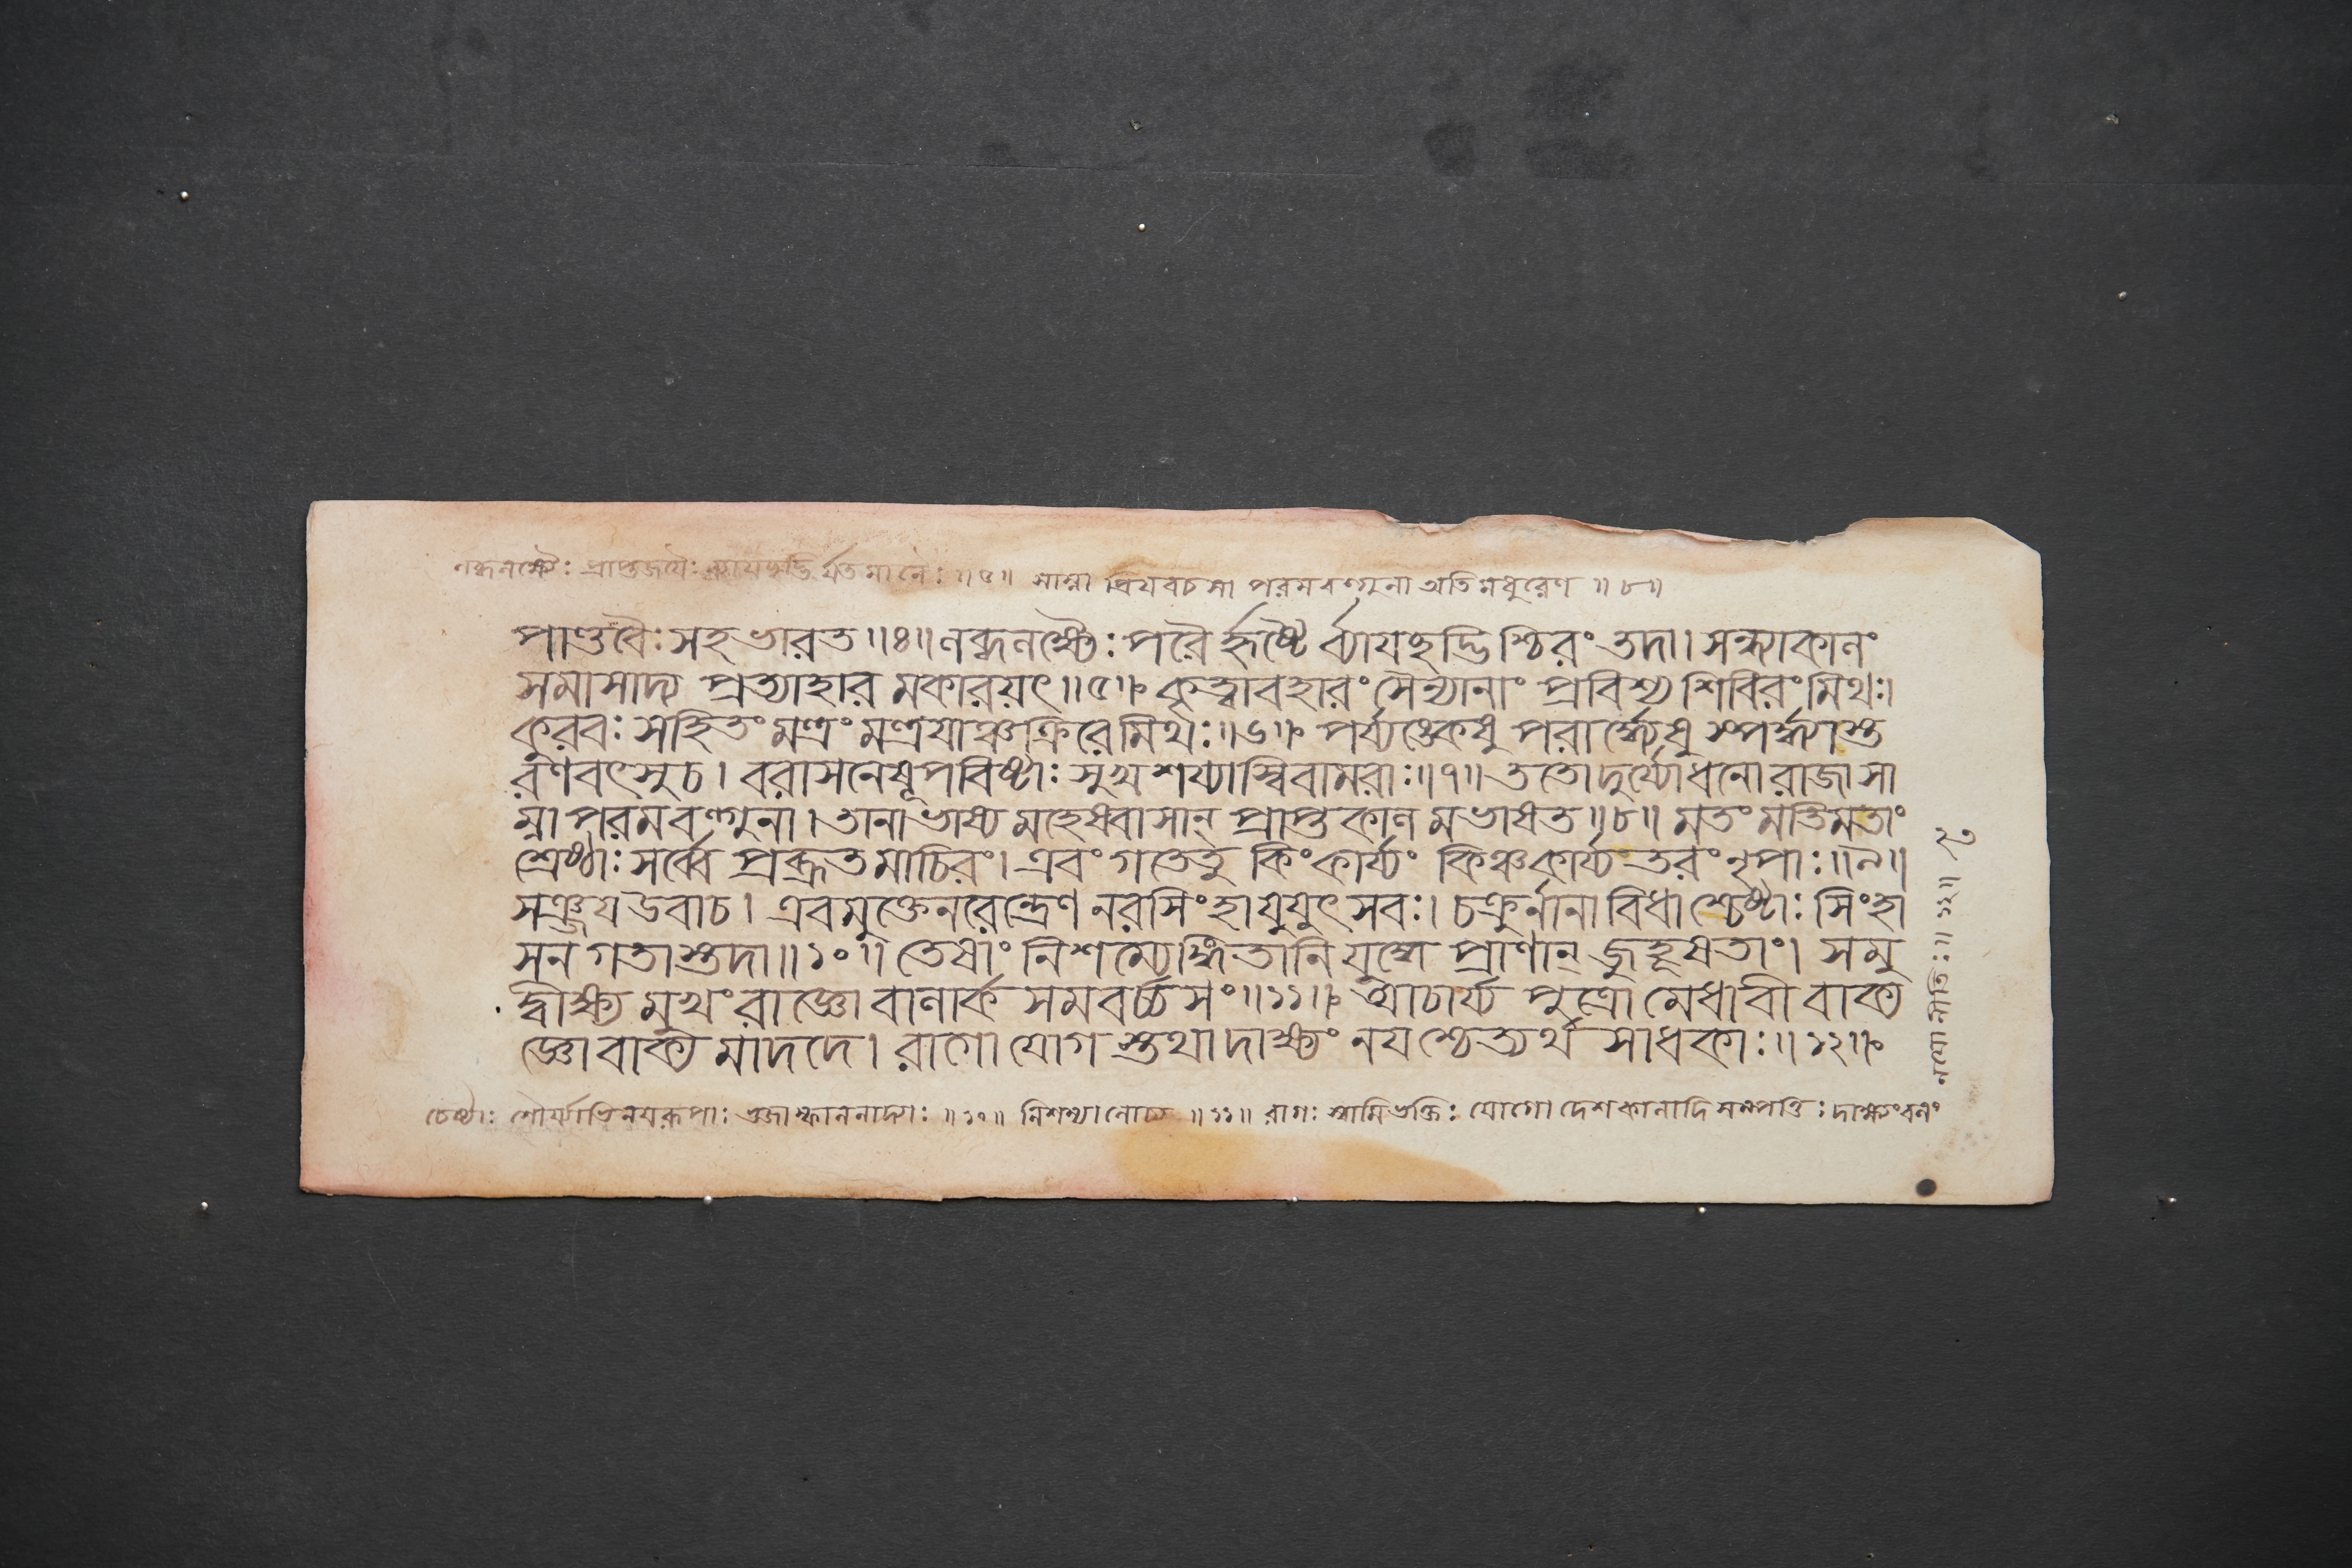 লব্ধলক্ষৈঃ প্রাপ্তজয়ৈঃ ব্যাযচ্ছদ্ভির্যতমানৈঃ ॥৫॥ সাম্না প্রিয়বচসা পরমবল্গুনা অতিমধুরেণ ॥৮॥
পাণ্ডবৈঃ সহ ভারত ॥৪॥ লব্ধলক্ষৈঃ পরৈর্হৃষ্টৈর্ব্যাযচ্ছদ্ভিশ্চিরং তদা। সন্ধ্যাকালং
সমাসাদ্য প্রত্যাহার মকারয়ৎ ॥৫॥ কৃত্বাবহারং সৈন্যানাং প্রবিশ্য শিবিরং মিথঃ।
কুরবঃ সেহিতং মন্ত্রং মন্ত্রযাঞ্চক্রিরে মিথঃ ॥৬॥ পর্য্যঙ্কেষু পরার্দ্ধ্যেষু স্পর্দ্ধ্যাস্ত
রণবৎসু চ। বরাসনেষূপবিষ্টাঃ সুখশয্যাস্বিবামরাঃ ॥৭॥ ততো দুর্য্যোধনো রাজা সা
ম্না পরমবল্গুনা। তানাভাষ্য মহেষ্বাসান্ প্রাপ্তকাল মভাষত ॥৮॥ মতং মতিমতাং
শ্রেষ্ঠাঃ সর্ব্বে প্রব্রূত মাচিরং। এবং গতেতু কিং কার্য্যং কিঞ্চ কার্য্যতরং নৃপাঃ ॥৯॥
সঞ্জয উবাচ। এবমুক্তে নরেন্দ্রেণ নরসিংহা যুযুৎসবঃ। চক্রুর্নানাবিধাশ্চেষ্টাঃ সিংহা
সন গতাস্তদা ॥১০॥ তেষাং নিশম্যেঙ্গিতানি যুদ্ধে প্রাণান্ জুহূষতাং। সমু
দ্বীক্ষ্য মুখং রাজ্ঞো বালার্ক সমবর্চ্চসং ॥১১॥ আচার্য্য পুত্রো মেধাবী বাক্য
জ্ঞো বাক্য মাদদে। রাগো যোগ স্তথা দাক্ষ্যং নযশ্চেত্যর্থ সাধকাঃ ॥১২॥
চেষ্টাঃ শৌর্য্যাভিনয়রূপাঃ ভুজাস্ফালনাদ্যাঃ ॥১০॥ নিশম্যালোচ্য ॥১১॥ রাগঃ স্বামিভক্তিঃ যোগো দেশকালাদি সম্পত্তিঃ দাক্ষ্যং বলং
নয়ো নীতিঃ ॥ ১২॥